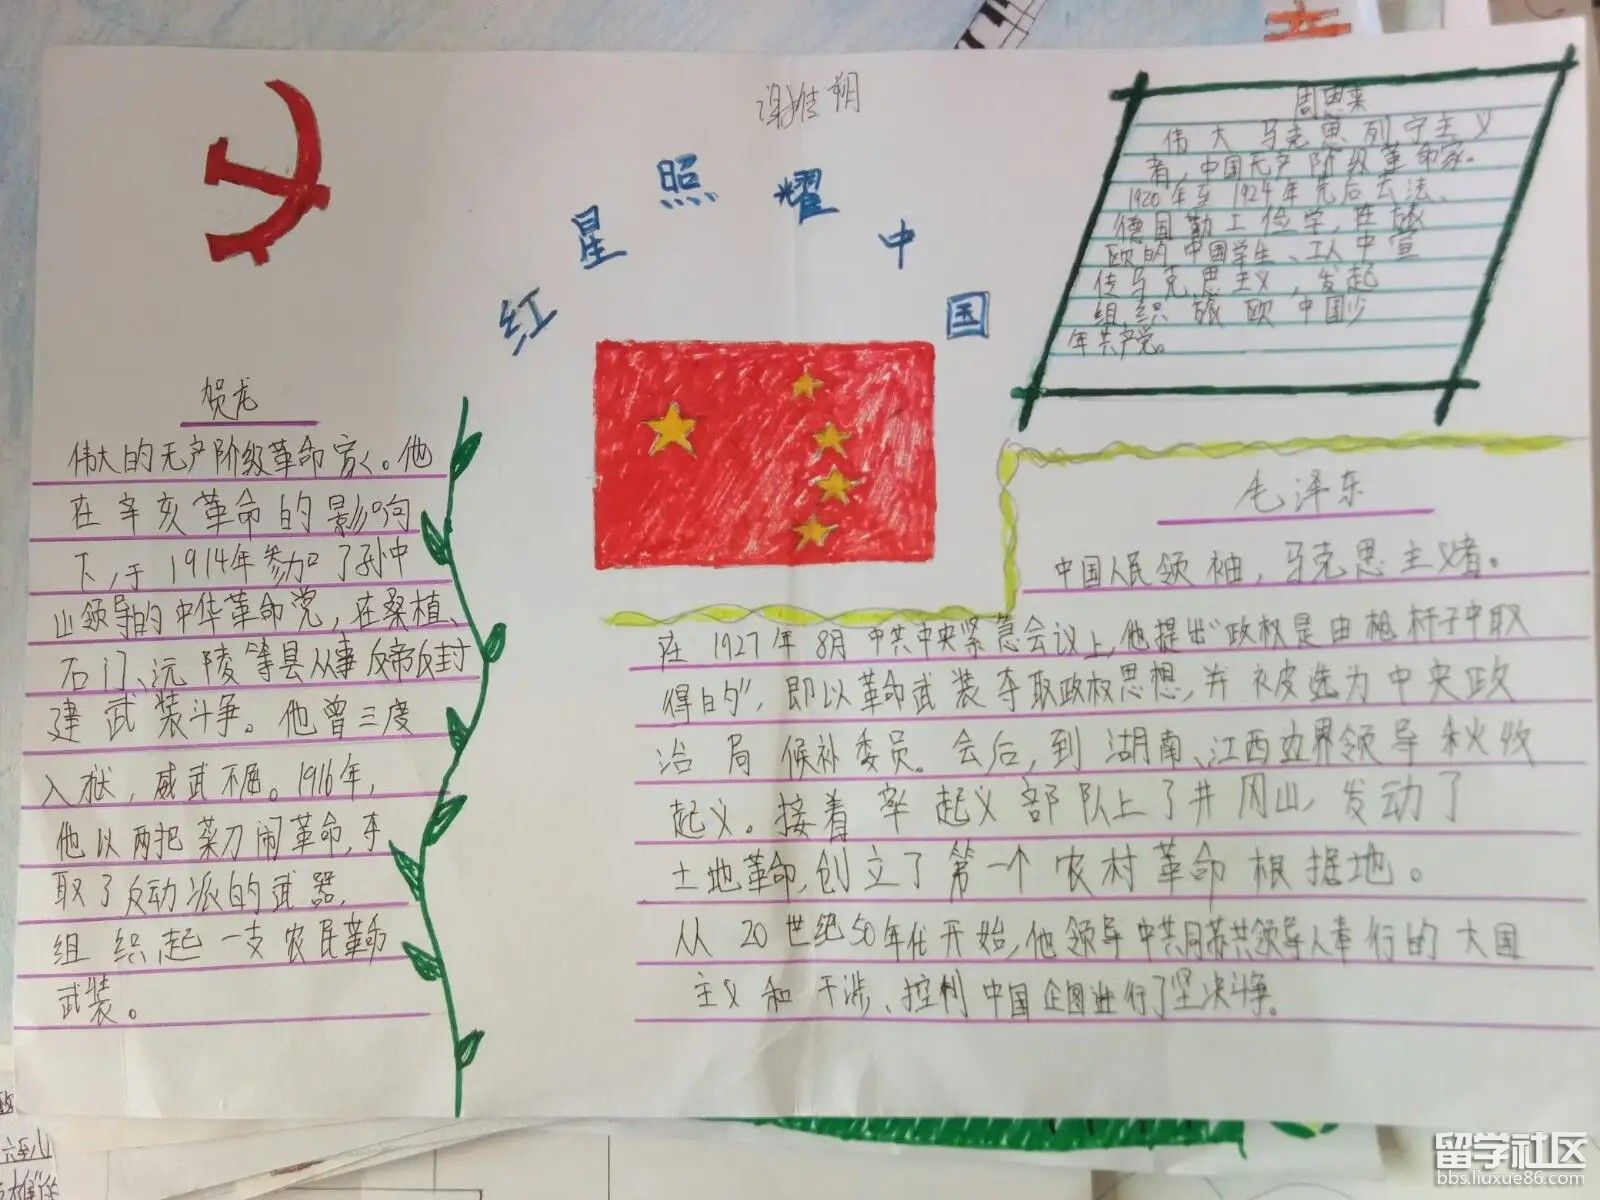 谢佳朔
红星照耀中国
贺龙
伟大的无产阶级革命家。他
在辛亥革命的影响
下,于1914年参加了孙中
山领导的中华革命党,在桑植、
石门、沅陵等县从事反帝反封
建武装斗争。他曾三度
入狱,威武不屈。1916年,
他以两把菜刀闹革命,夺
取了反动派的武器,
组织起一支农民革命
武装。
周恩来
伟大马克思列宁主义
者,中国无产阶级革命家。
1920年至1924年先后去法、
德国勤工俭学,在旅
欧的中国学生、工人中宣
传马克思主义,发起
组织旅欧中国少
年共产党。
毛泽东
中国人民领袖,马克思主义者。
在1927年8月中共中央紧急会议上,他提出“政权是由枪杆子中取
得的”,即以革命武装夺取政权思想,并被选为中央政
治局候补委员。会后,到湖南、江西边界领导秋收
起义。接着率起义部队上了井冈山,发动了
土地革命,创立了第一个农村革命根据地。
从20世纪50年代开始,他领导中共同苏共领导人奉行的大国
主义和干涉、控制中国企图进行了坚决斗争。
留学社区
bbs.liuxue86.com